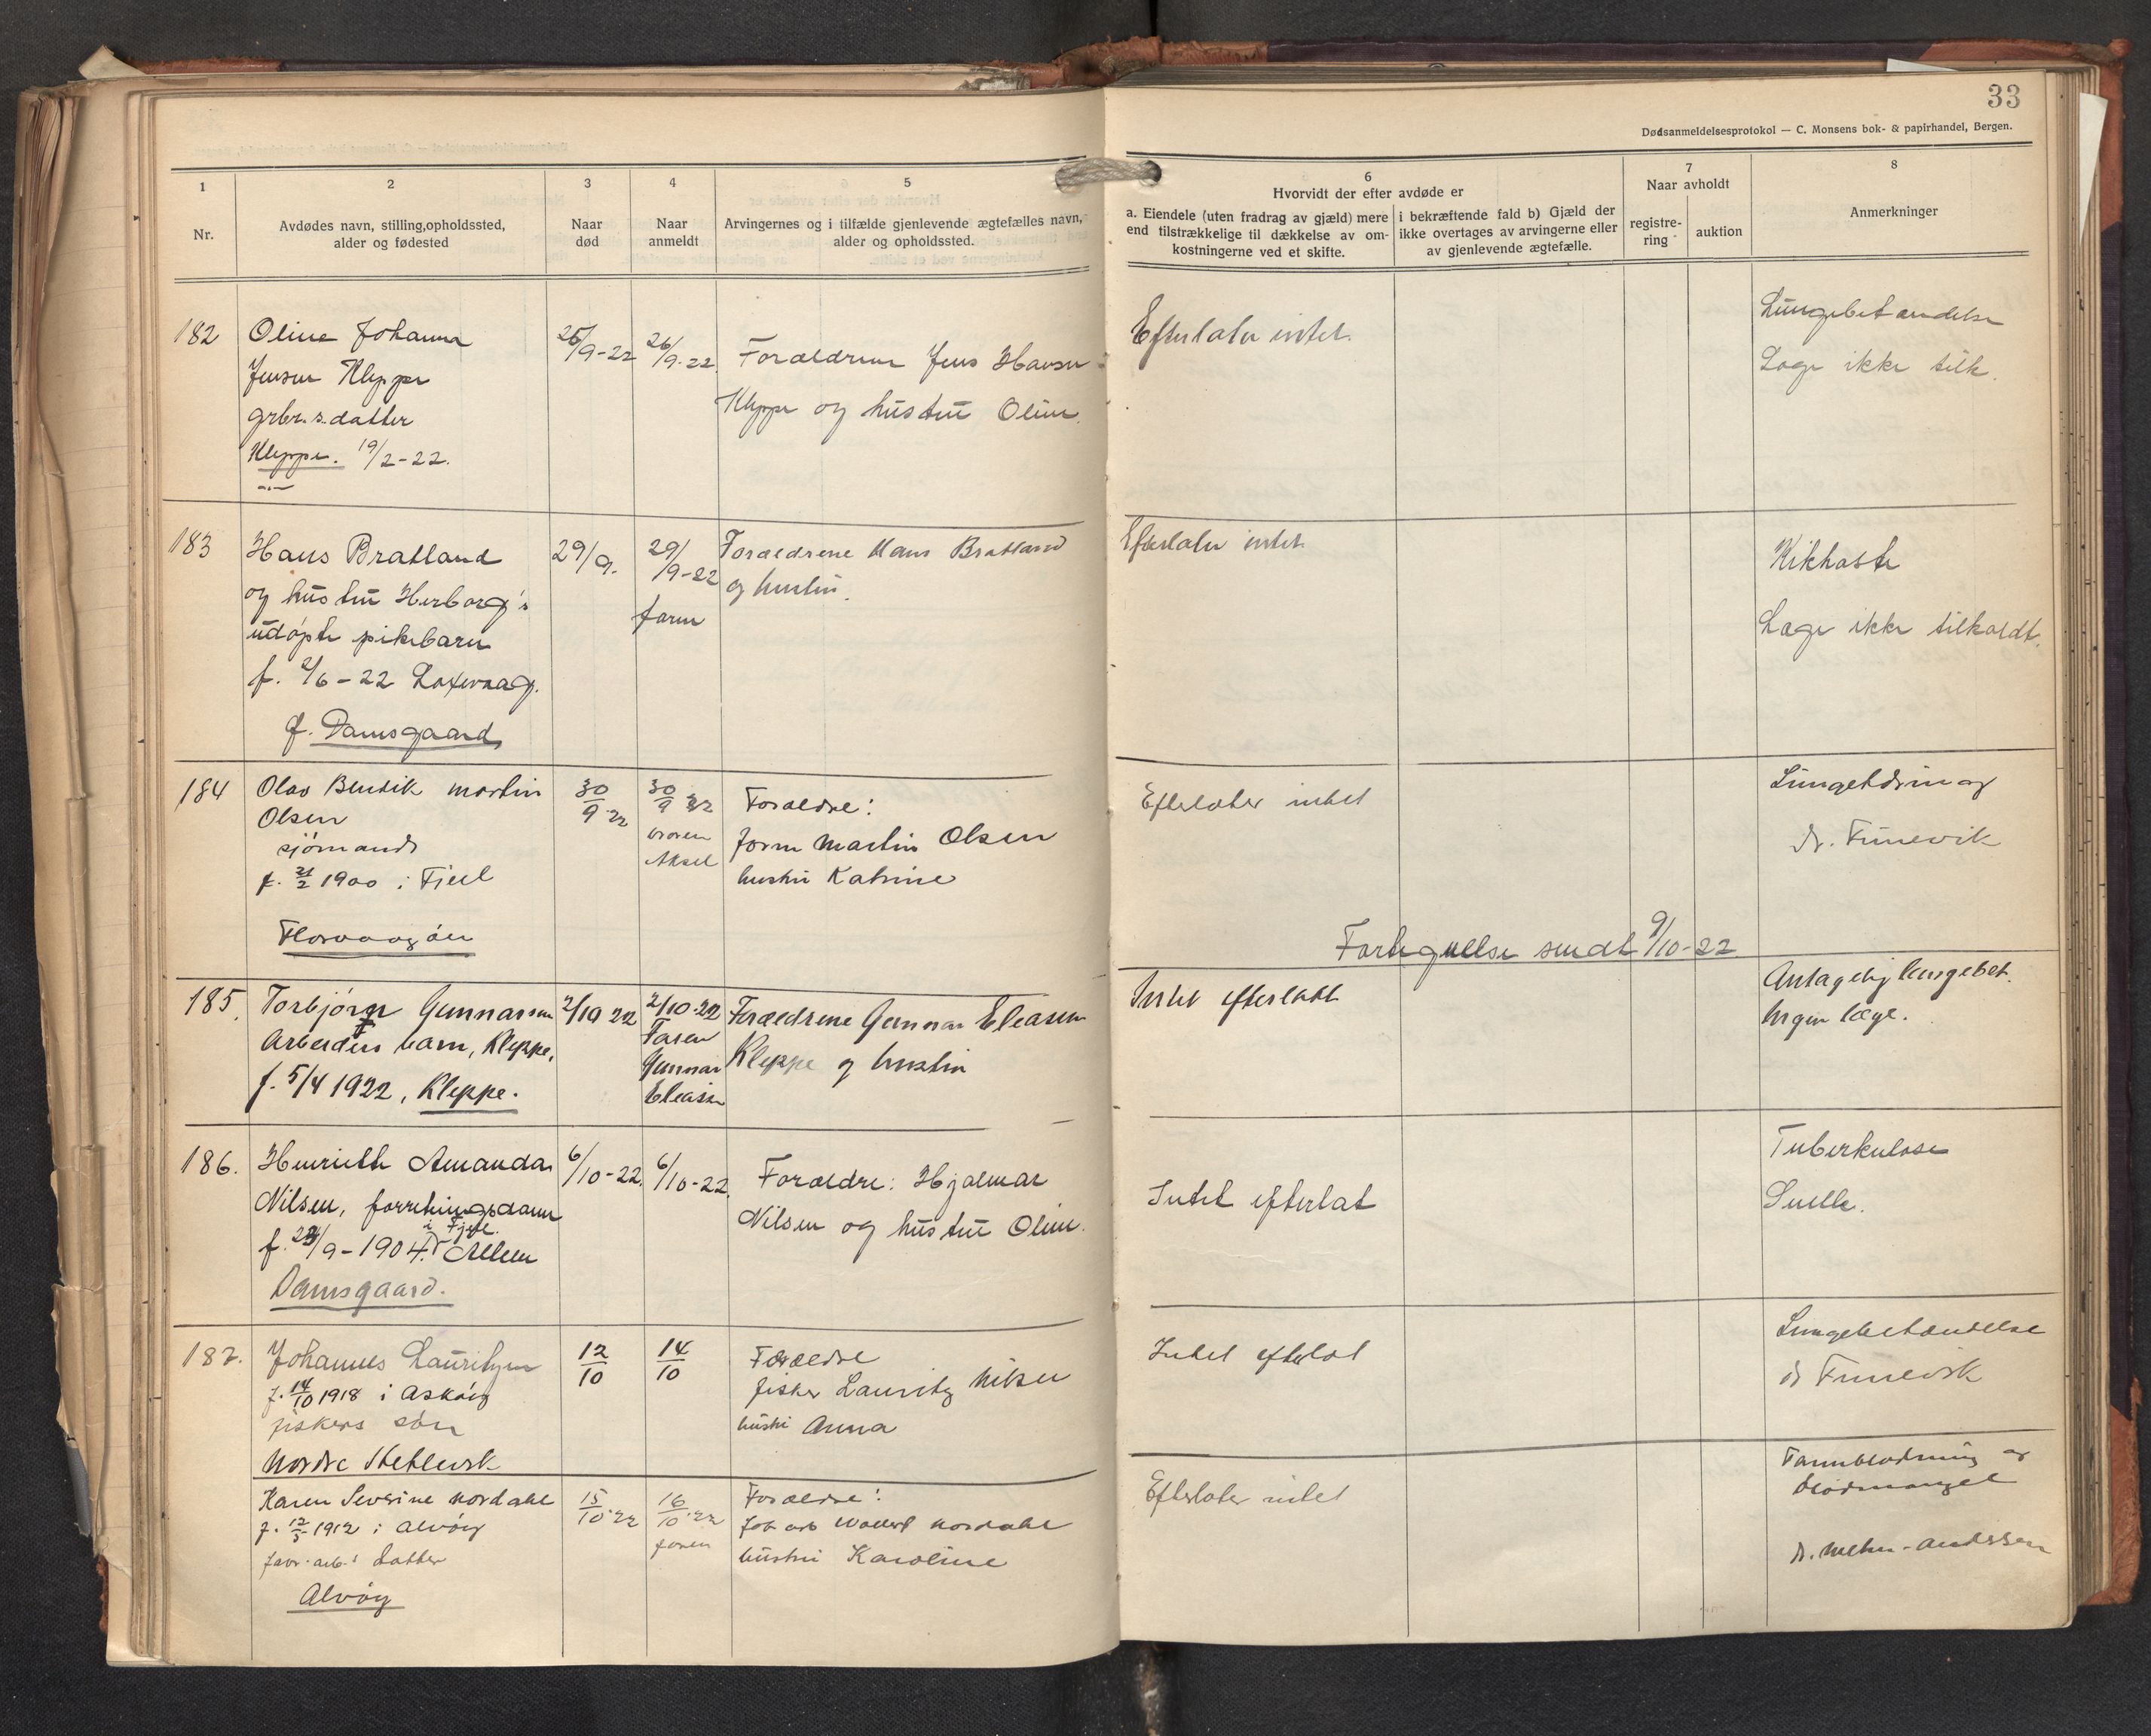 33
Dødsanmeldelsesprotokol — C. Monsens bok- & papirhandel, Bergen.
1
Nr.
2
Avdødes navn, stilling, opholdssted,
alder og fødested
3
Naar
død
4
Naar
anmeldt
5
Arvingernes og i tilfælde gjenlevende ægtefælles navn,
alder og opholdssted.
6
Hvorvidt der efter avdøde er
a. Eiendele (uten fradrag av gjæld) mere
end tilstrækkelige til dækkelse av om-
kostningerne ved et skifte.
i bekræftende fald b) Gjæld der
ikke overtages av arvingerne eller
av gjenlevende ægtefælle.
7
Naar avholdt
registre-
ring
auktion
8
Anmerkninger
182
Oline Johanna
Jensen Kleppe
grbr.s.datter
Kleppe. 19/2-22.
25/9-22
26/9-22
Forældrene Jens Hansen
Kleppe og hustru Oline.
Efterlater intet.
Lungebetændelse
Læge ikke tilk.
183
Hans Bratland
og hustru Herborg's
udøpte pikebarn
f. 2/6-22 Laxevaag.
f. Damsgaard
29/9.
29/9-22
faren
Forældrene Hans Bratland
og hustru.
Efterlater intet.
Kikhoste
Læge ikke tilkaldt.
184
Olav Bendik Martin
Olsen
sjømand
f. 21/2 1900 i Fjell
Florvaagøen
30/9-22
30/9 22
broren
Aksel
Forældre:
form Martin Olsen
hustru Katrine
Efterlater intet
dr. Finnevik
Fortegnelse sendt 9/10-22
185.
Torbjørn Gunnarsen
Arbeiders barn, Kleppe.
f. 5/4 1922, Kleppe.
2/10 22
2/10-22
Faren
Gunnar
Eleasen
Forældrene Gunnar Eleasen
Kleppe og hustru
Intet efterladt
Antagelig lungebet.
Ingen læge.
186.
Henriette Amanda
Nilsen, forretningsdame
i Fjell.
f. 23/9-1904.
Damsgaard.
6/10-22.
6/10-22.
Forældre: Hjalmar
Nilsen og hustru Oline.
Intet efterlat
Tuberkulose
187.
Johannes Lauritzen
f. 14/10 1918 i Askøy
fiskers søn
12/10
14/10
Forældre
fisker Lauritz Nilsen
hustru Anna
Intet efterlat
Lungebetændelse
dr Finnevik
Karen Severine Nordahl
f. 12/5 1912 i Alvøy
fabr. arb.s datter
Alvøy
15/10-22
16/10-22
faren
Forældre:
fab arb Nordahl
hustru Karoline
Efterlater intet
Tarmblødning og
blodmangel